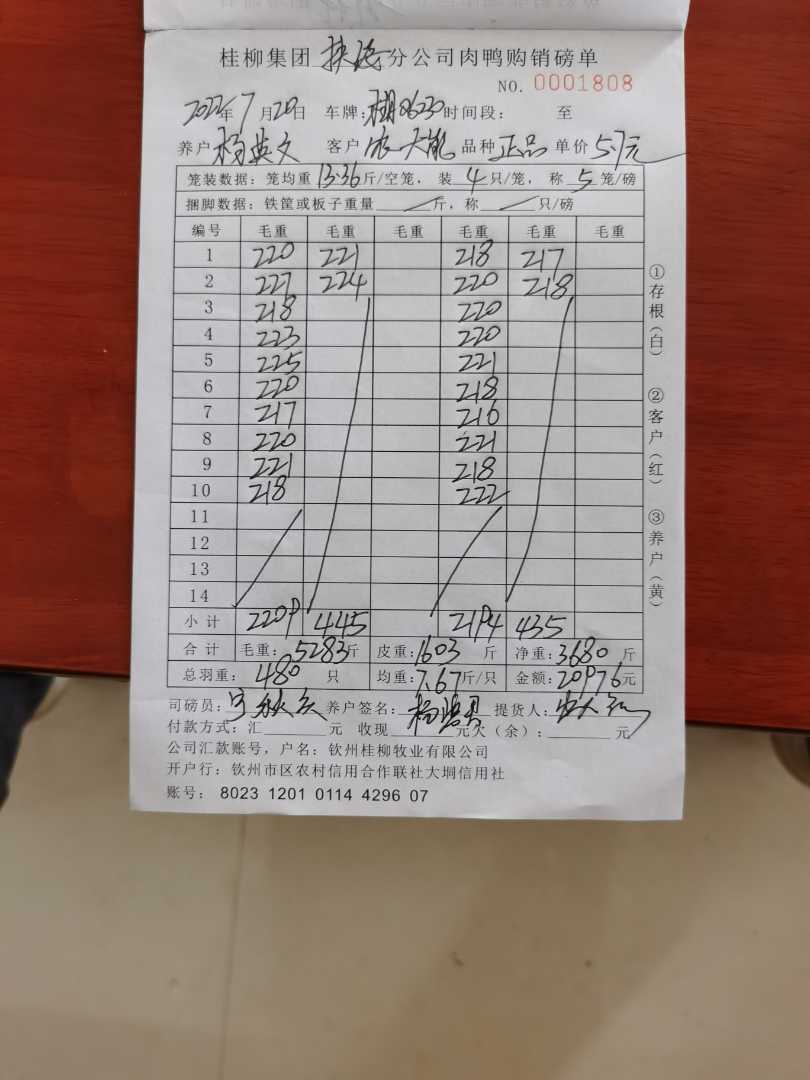 桂柳集团 扶绥 分公司肉鸭购销磅单
NO. 0001808
2022年7月20日 车牌: 0630 时间段: 至
养户 杨英文 客户 农大凯 品种 正品 单价 5.7元
笼装数据: 笼均重 13.36 斤/空笼, 装 4 只/笼, 称 5 笼/磅
捆脚数据: 铁筐或板子重量 斤, 称 只/磅
编号 毛重 毛重 毛重 毛重 毛重 毛重
1 220 221 218 217
2 227 224 220 218
3 218 220
4 223 220
5 225 221
6 220 218
7 217 216
8 220 221
9 221 218
10 218 222
11
12
13
14
小计 2209 445 2194 435
合计 毛重: 5283斤 皮重: 1603 斤 净重: 3680 斤
总羽重: 480 只 均重: 7.67斤/只 金额: 20976元
司磅员: 养户签名: 杨 提货人: 农大凯
付款方式: 汇 元 收现 元欠(余): 元
公司汇款账号, 户名: 钦州桂柳牧业有限公司
开户行: 钦州市区农村信用合作联社大垌信用社
账号: 8023 1201 0114 4296 07
①存根(白)
②客户(红)
③养户(黄)